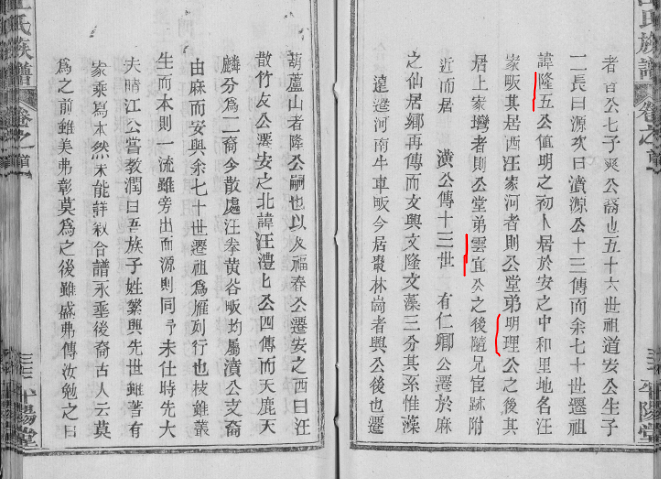 汪氏族譜 卷之首 三 平陽堂
者百公七子爽公裔也五十六世祖道安公生子
二長曰源次曰濆源公十三傳而余七十世遷祖
諱隆五公值明之初卜居於安之中和里地名汪
家畈其居西汪家河者則公堂弟明理公之後其
居上家灣者則公堂弟雲宜公之後隨兄宦跡附
近而居 濆公傳十三世 有仁卿公遷於麻
之仙居鄉再傳而文興文隆文藻三分其系惟藻
遠遷河南牛車畈今居棗林崗者興公後也遷
葫蘆山者隆公嗣也以及福春公遷安之西曰汪
散竹友公遷安之北諱汪澧上公四傳而天鹿天
麟分為二裔今散處汪㟁黃谷畈均屬濆公支裔
由麻而安與余七十世遷祖為雁列行也枝雖叢
生而本則一流雖旁出而源則同予未仕時先大
夫晴江公嘗教潤曰吾族子姓繁興先世雖著有
家乘為水然未能詳敘合譜永垂後裔古人云莫
為之前雖美弗彰莫為之後雖盛弗傳汝勉之曰
氏族譜 卷之首 三 平陽堂